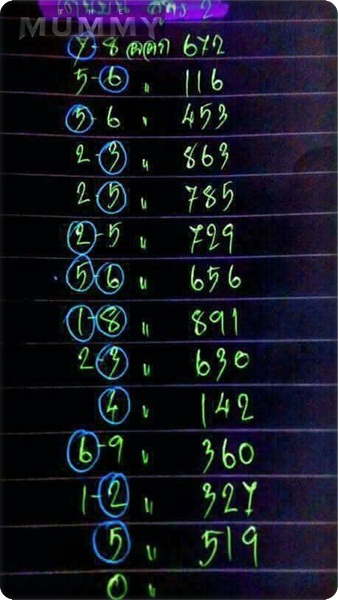 MUMMY
สูตร 2
7-8 672
5-6 " 116
5-6 " 453
2-3 " 863
2-5 " 785
2-5 " 729
5-6 " 656
1-8 " 891
2-3 " 630
4 " 142
6-9 " 360
1-2 " 327
5 " 519
0 "